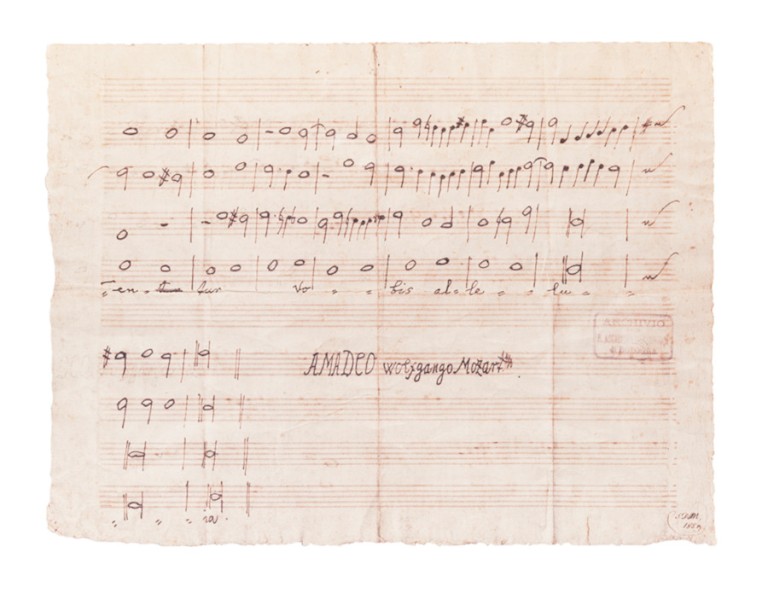 en tur vo bis al le lu
AMADEO wolfgango Mozart
ARCHIVIO
ia.